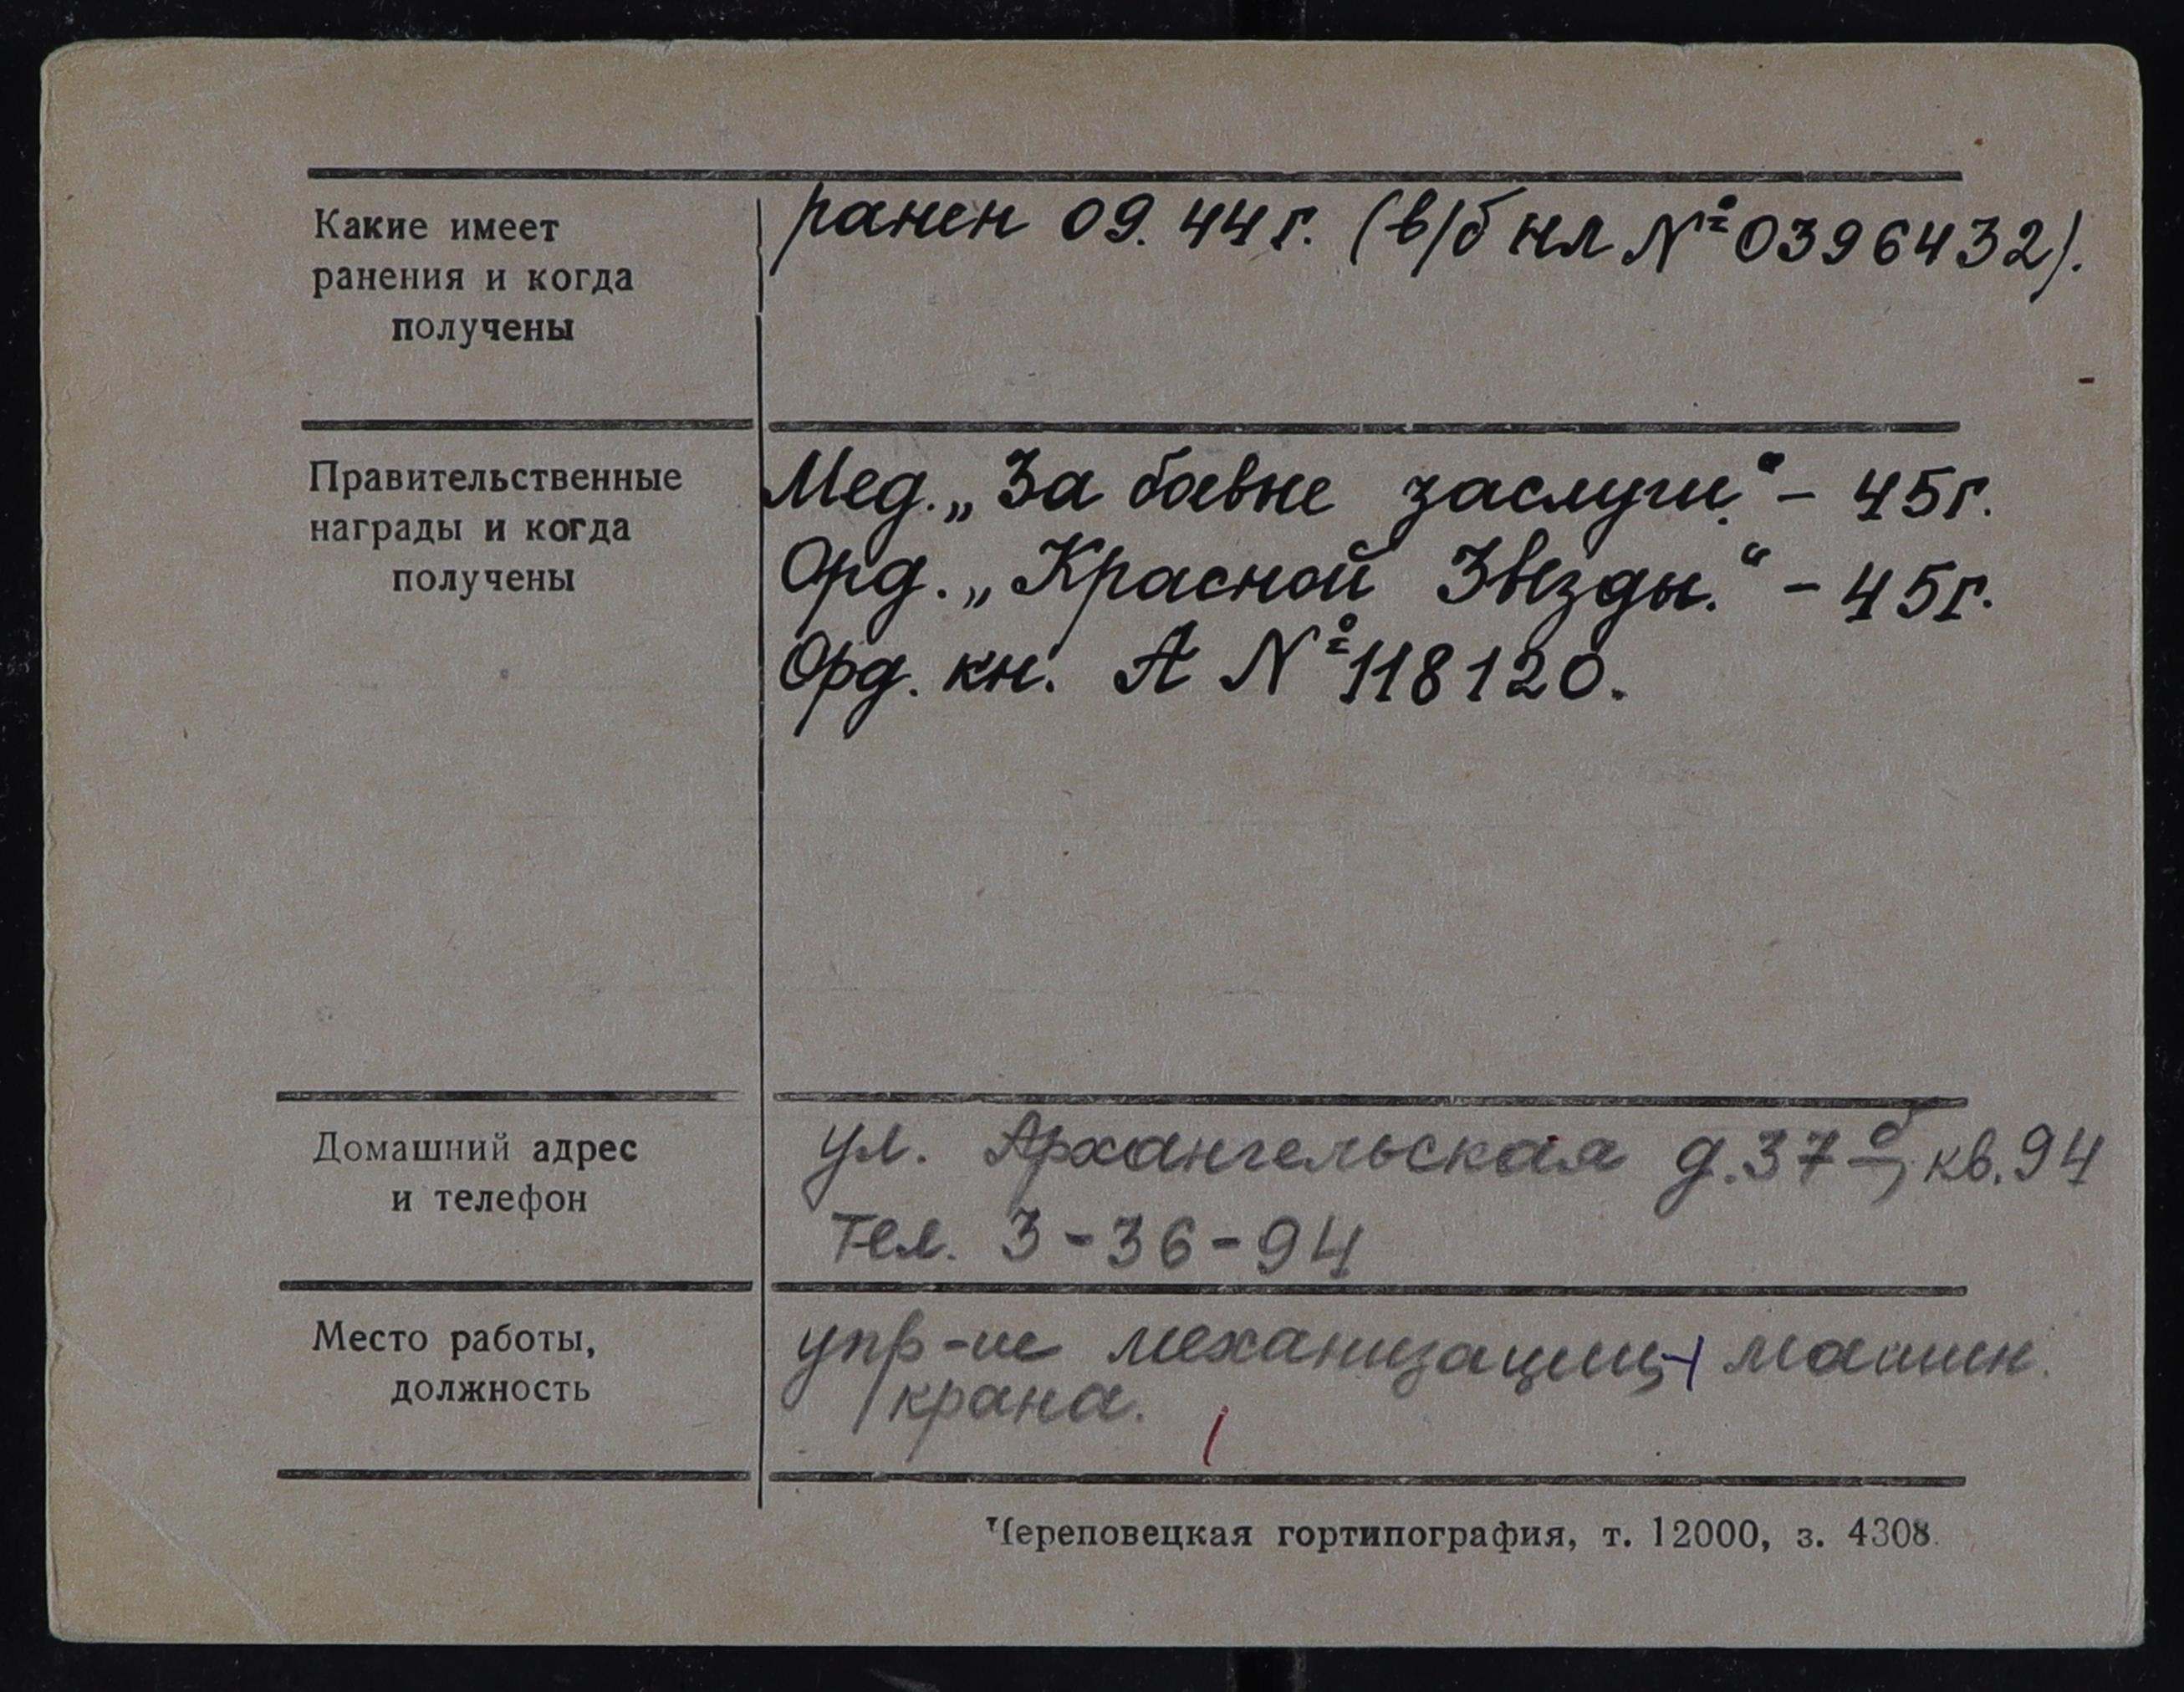 Какие имеет
ранения и когда
получены
ранен 09.44г. (в/б нл №0396432).
Правительственные
награды и когда
получены
Мед. „За боевые заслуги.“ – 45г.
Орд. „Красной Звезды.“ – 45г.
Орд. кн. А №118120.
Домашний адрес
и телефон
ул. Архангельская д.37 б, кв.94
тел. 3-36-94
Место работы,
должность
упр-ие механизации, машин.
крана.
Череповецкая гортипография, т. 12000, з. 4308.